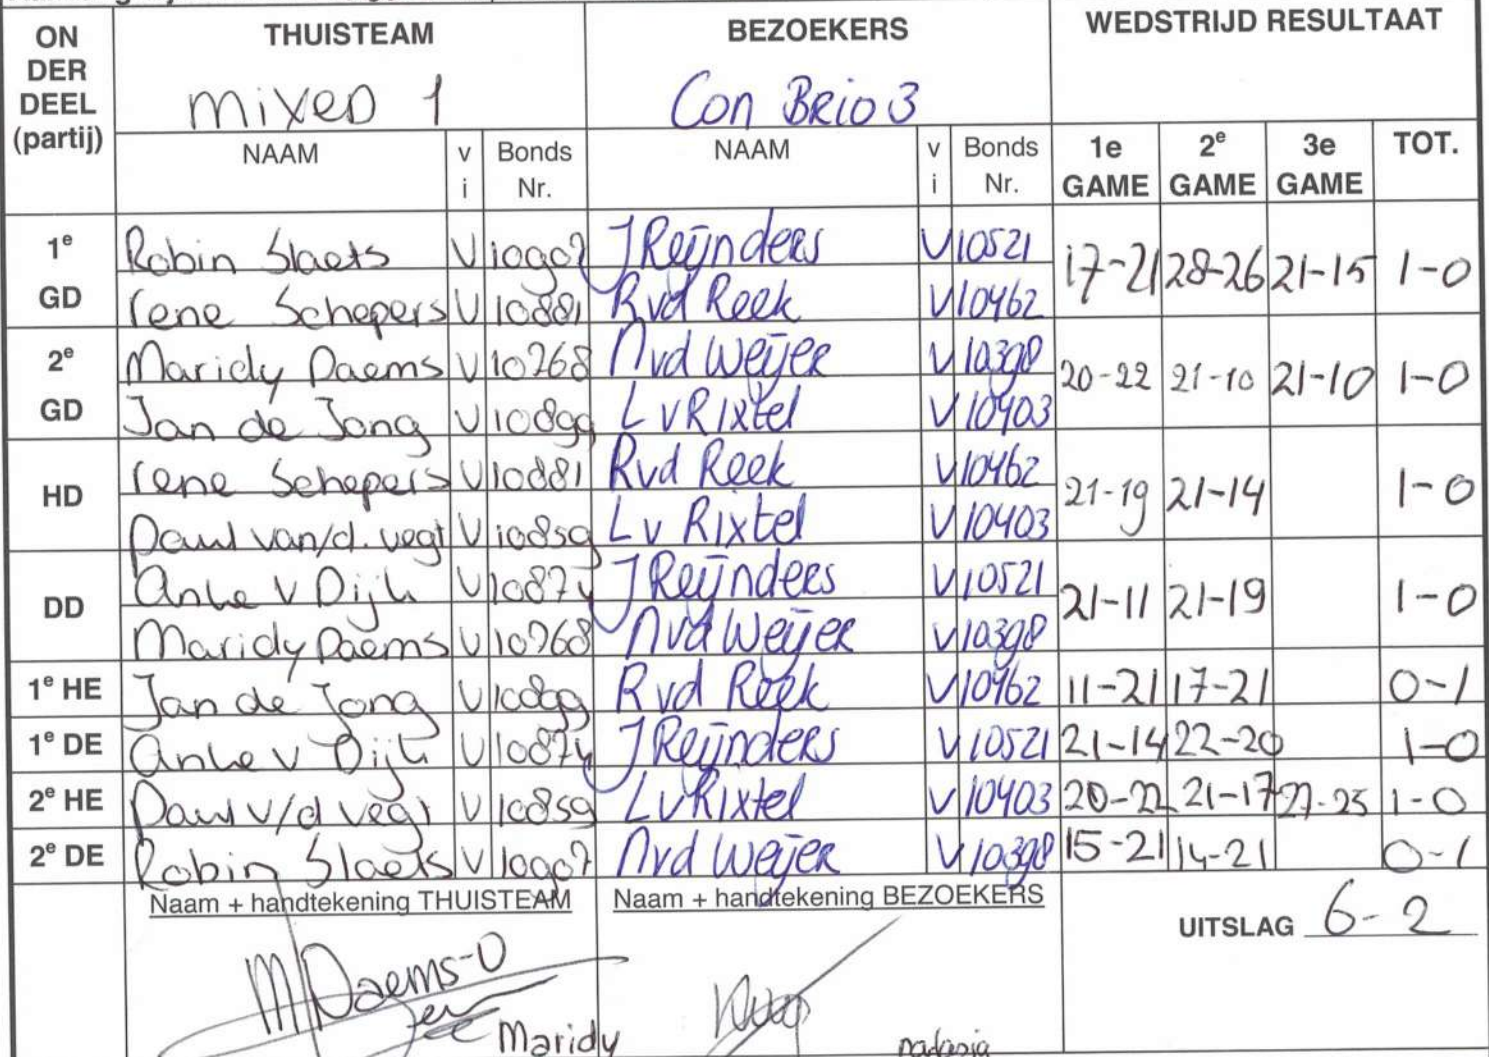 ON DER DEEL (partij) THUISTEAM BEZOEKERS WEDSTRIJD RESULTAAT
mixed 1 Con Brio 3
NAAM vi Bonds Nr. NAAM vi Bonds Nr. 1e GAME 2e GAME 3e GAME TOT.
1e GD Robin Slaets V 10907 J Reijnders V 10521 17-21 28-26 21-15 1-0
rene Schepers V 10881 R vd Reek V 10462
2e GD Maridy Daems V 10768 N vd Weijer V 10398 20-22 21-10 21-10 1-0
Jan de Jong V 10899 L v Rixtel V 10403
HD rene Schepers V 10881 R vd Reek V 10462 21-19 21-14 1-0
Paul van/d. vegt V 10859 L v Rixtel V 10403
DD Anke v Dijk V 10874 J Reijnders V 10521 21-11 21-19 1-0
Maridy Daems V 10768 N vd Weijer V 10398
1e HE Jan de Jong V 10899 R vd Reek V 10462 11-21 17-21 0-1
1e DE Anke v Dijk V 10874 J Reijnders V 10521 21-14 22-20 1-0
2e HE Paul v/d vegt V 10859 L v Rixtel V 10403 20-22 21-17 27-25 1-0
2e DE Robin Slaets V 10907 N vd Weijer V 10398 15-21 14-21 0-1
Naam + handtekening THUISTEAM Naam + handtekening BEZOEKERS UITSLAG 6-2
M Daems-O
Maridy